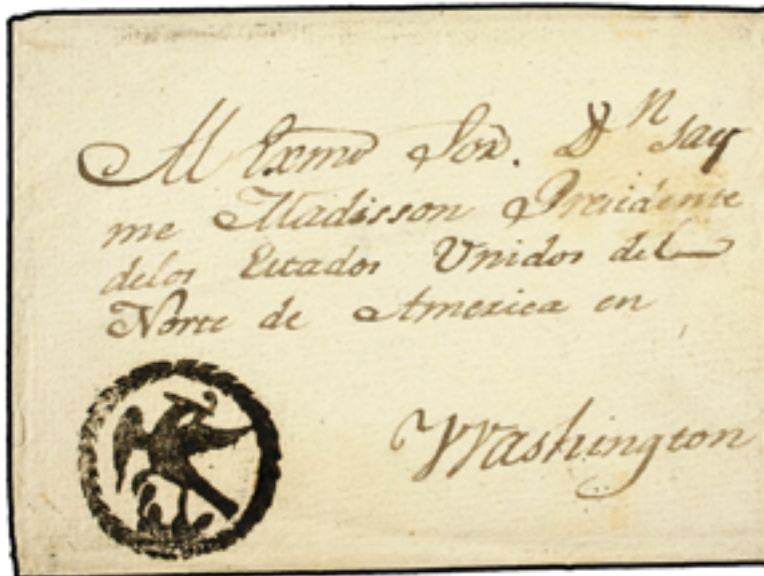 Al Exmo Sor. Dn Jay
me Madisson Presidente
delos Estados Unidos del
Norte de America en
Washington